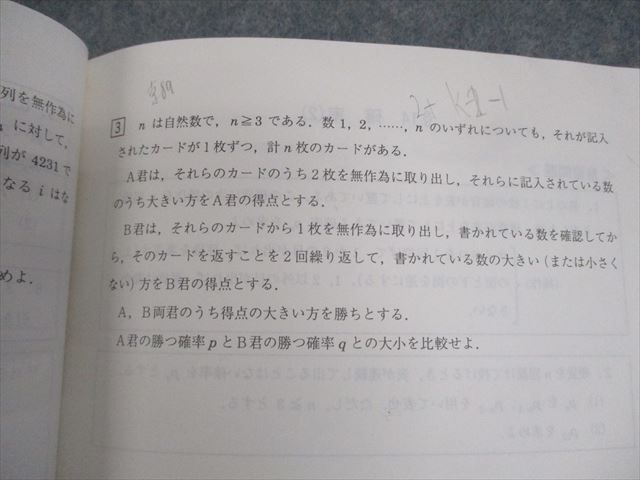 列を無作為に
に対して，
列が 4231 で
なる i はな
めよ．
京89
K≧-1
3 n は自然数で，n≧3 である．数 1，2，……，n のいずれについても，それが記入
されたカードが1枚ずつ，計 n 枚のカードがある．
A君は，それらのカードのうち2枚を無作為に取り出し，それらに記入されている数
のうち大きい方をA君の得点とする．
B君は，それらのカードから1枚を無作為に取り出し，書かれている数を確認してか
ら，そのカードを返すことを2回繰り返して，書かれている数の大きい（または小さく
ない）方をB君の得点とする．
A，B両君のうち得点の大きい方を勝ちとする．
A君の勝つ確率 p とB君の勝つ確率 q との大小を比較せよ．